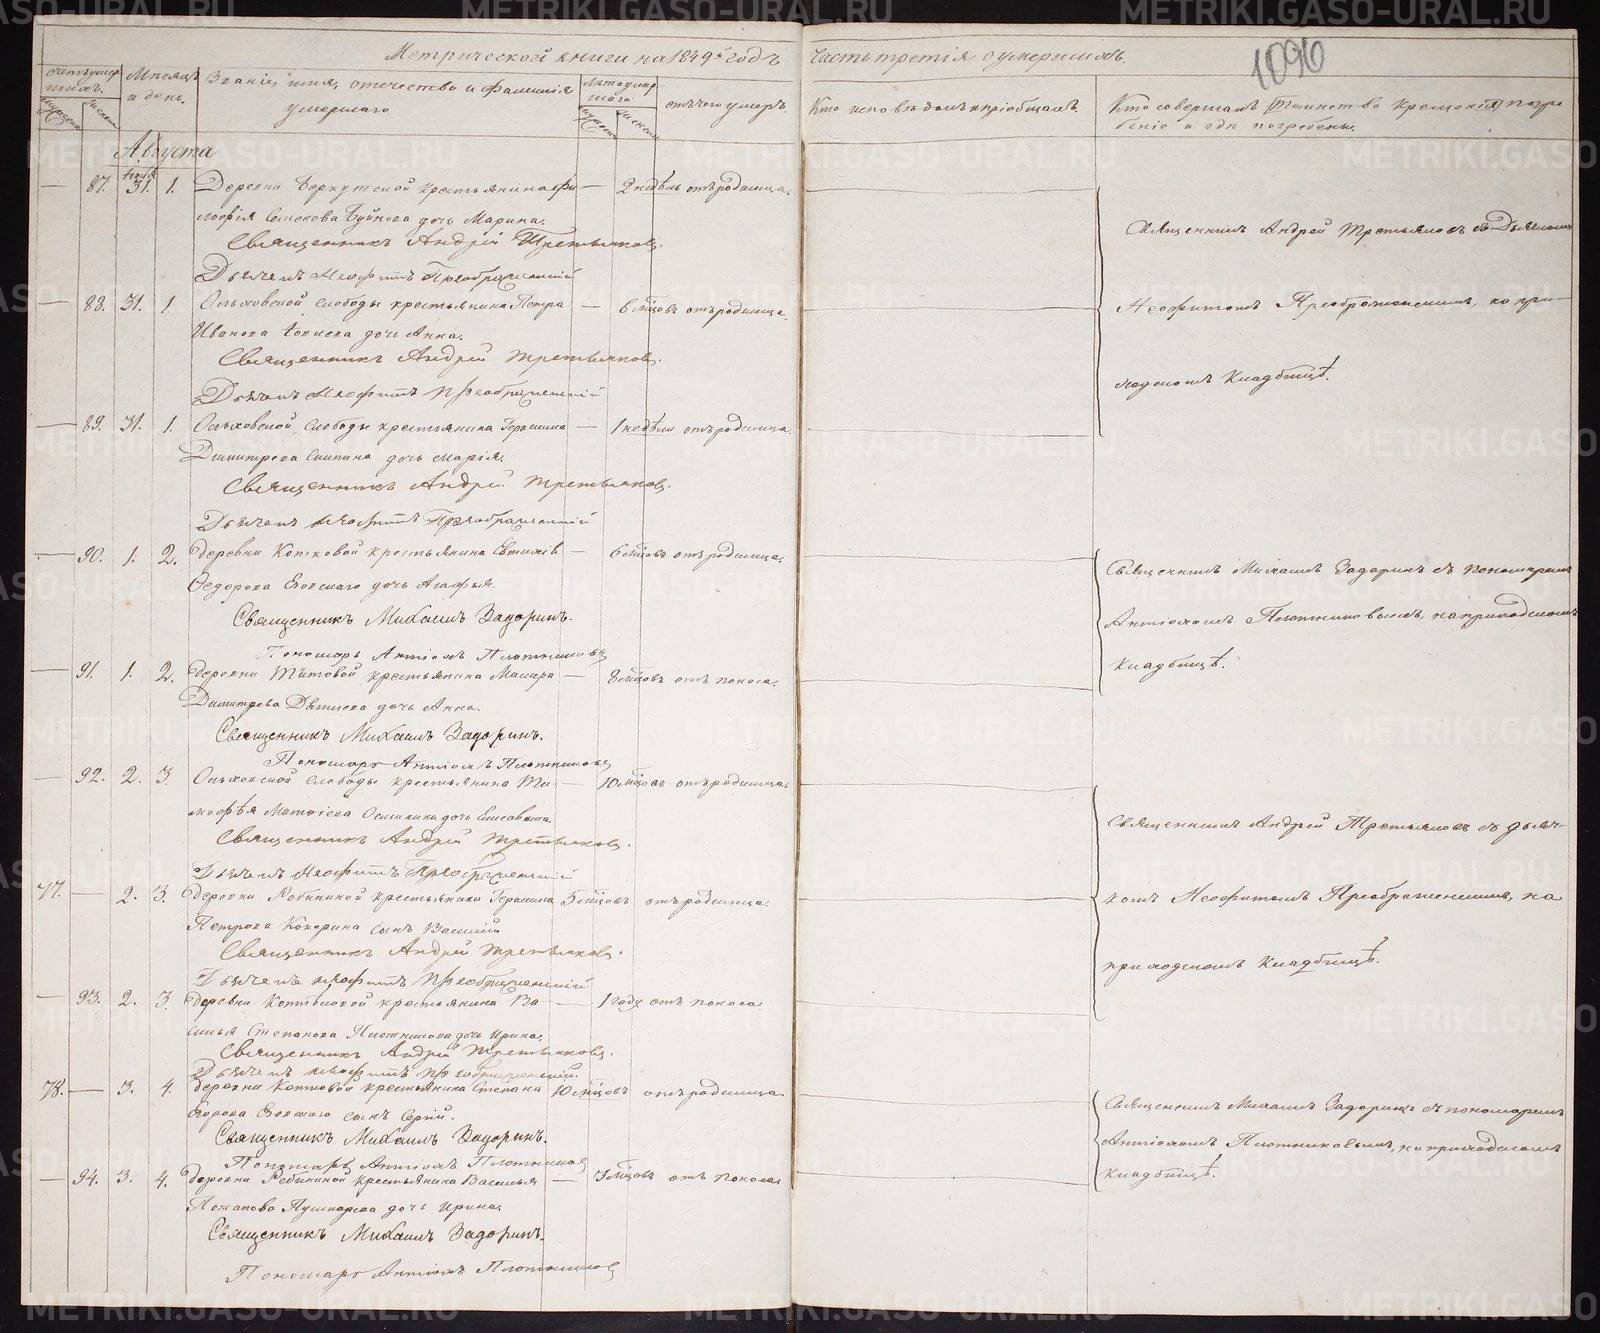 Метрической книги на 1849й годъ
Часть третія о умершихъ.
1096
Счетъ умершихъ.
Мѣсяцъ и день.
Званіе, имя, отечество и фамилія умершаго
Лѣта умершаго
отъ чего умеръ.
Кто исповѣдалъ и пріобщалъ.
Кто совершалъ погребеніе и гдѣ погребены.
Августа
— 87. 31. 1. Деревни крестьянина — 2 недѣль отъ родимца.
дочь Марина.
Священникъ Андрей Третьяковъ.
Дьячекъ Неофитъ Преображенскій
— 88. 31. 1. Ольховской слободы крестьянина Петра — 6 мѣсцовъ отъ родимца.
Иванова дочь Анна.
Священникъ Андрей Третьяковъ.
Дьячекъ Неофитъ Преображенскій
— 89. 31. 1. Ольховской слободы крестьянина Герасима — 1 недѣли отъ родимца.
Димитрева дочь Марія.
Священникъ Андрей Третьяковъ.
Дьячекъ Неофитъ Преображенскій
Священникъ Андрей Третьяковъ съ Дьячкомъ
Неофитомъ Преображенскимъ, на при-
ходскомъ кладбищѣ.
— 90. 1. 2. Деревни Котковой крестьянина — 6 мѣсцовъ отъ родимца.
Федорова дочь Агафья.
Священникъ Михаилъ Задоринъ.
Пономарь Антіохъ Плотниковъ
— 91. 1. 2. Деревни Титовой крестьянина Макара — 8 мѣсцовъ отъ поноса.
Димитрева дочь Анна.
Священникъ Михаилъ Задоринъ.
Пономарь Антіохъ Плотниковъ
Священникъ Михаилъ Задоринъ съ пономаремъ
Антіохомъ Плотниковымъ, на приходскомъ
кладбищѣ.
— 92. 2. 3. Ольховской слободы крестьянина Ти- — 10 мѣсцовъ отъ родимца.
мофѣя дочь Елисавета.
Священникъ Андрей Третьяковъ.
Дьячекъ Неофитъ Преображенскій
77. — 2. 3. Деревни крестьянина Герасима 5 мѣсцовъ отъ родимца.
Петрова Кокорина сынъ Василій
Священникъ Андрей Третьяковъ.
Дьячекъ Неофитъ Преображенскій
— 93. 2. 3. Деревни крестьянина Ва- — 1 году отъ поноса.
силья Степанова Плотникова дочь Ирина.
Священникъ Андрей Третьяковъ.
Дьячекъ Неофитъ Преображенскій.
Священникъ Андрей Третьяковъ съ дьяч-
комъ Неофитомъ Преображенскимъ, на
приходскомъ кладбищѣ.
78. — 3. 4. Деревни Котковой крестьянина Степана 10 мѣсцовъ отъ родимца.
сынъ Сергій.
Священникъ Михаилъ Задоринъ.
Пономарь Антіохъ Плотниковъ
— 94. 3. 4. Деревни крестьянина Василья — мѣсцовъ отъ поноса.
Потапова Пушкарева дочь Ирина.
Священникъ Михаилъ Задоринъ.
Пономарь Антіохъ Плотниковъ
Священникъ Михаилъ Задоринъ съ пономаремъ
Антіохомъ Плотниковымъ, на приходскомъ
кладбищѣ.
METRIKI.GASO-URAL.RU